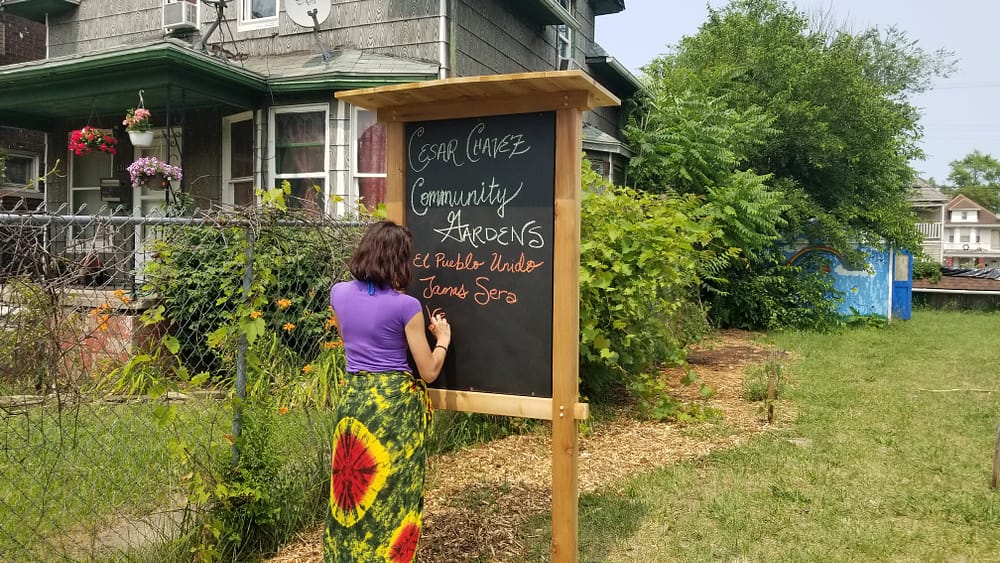 CESAR CHAVEZ
Community
GARDENS
El Pueblo Unido
Jamas Sera